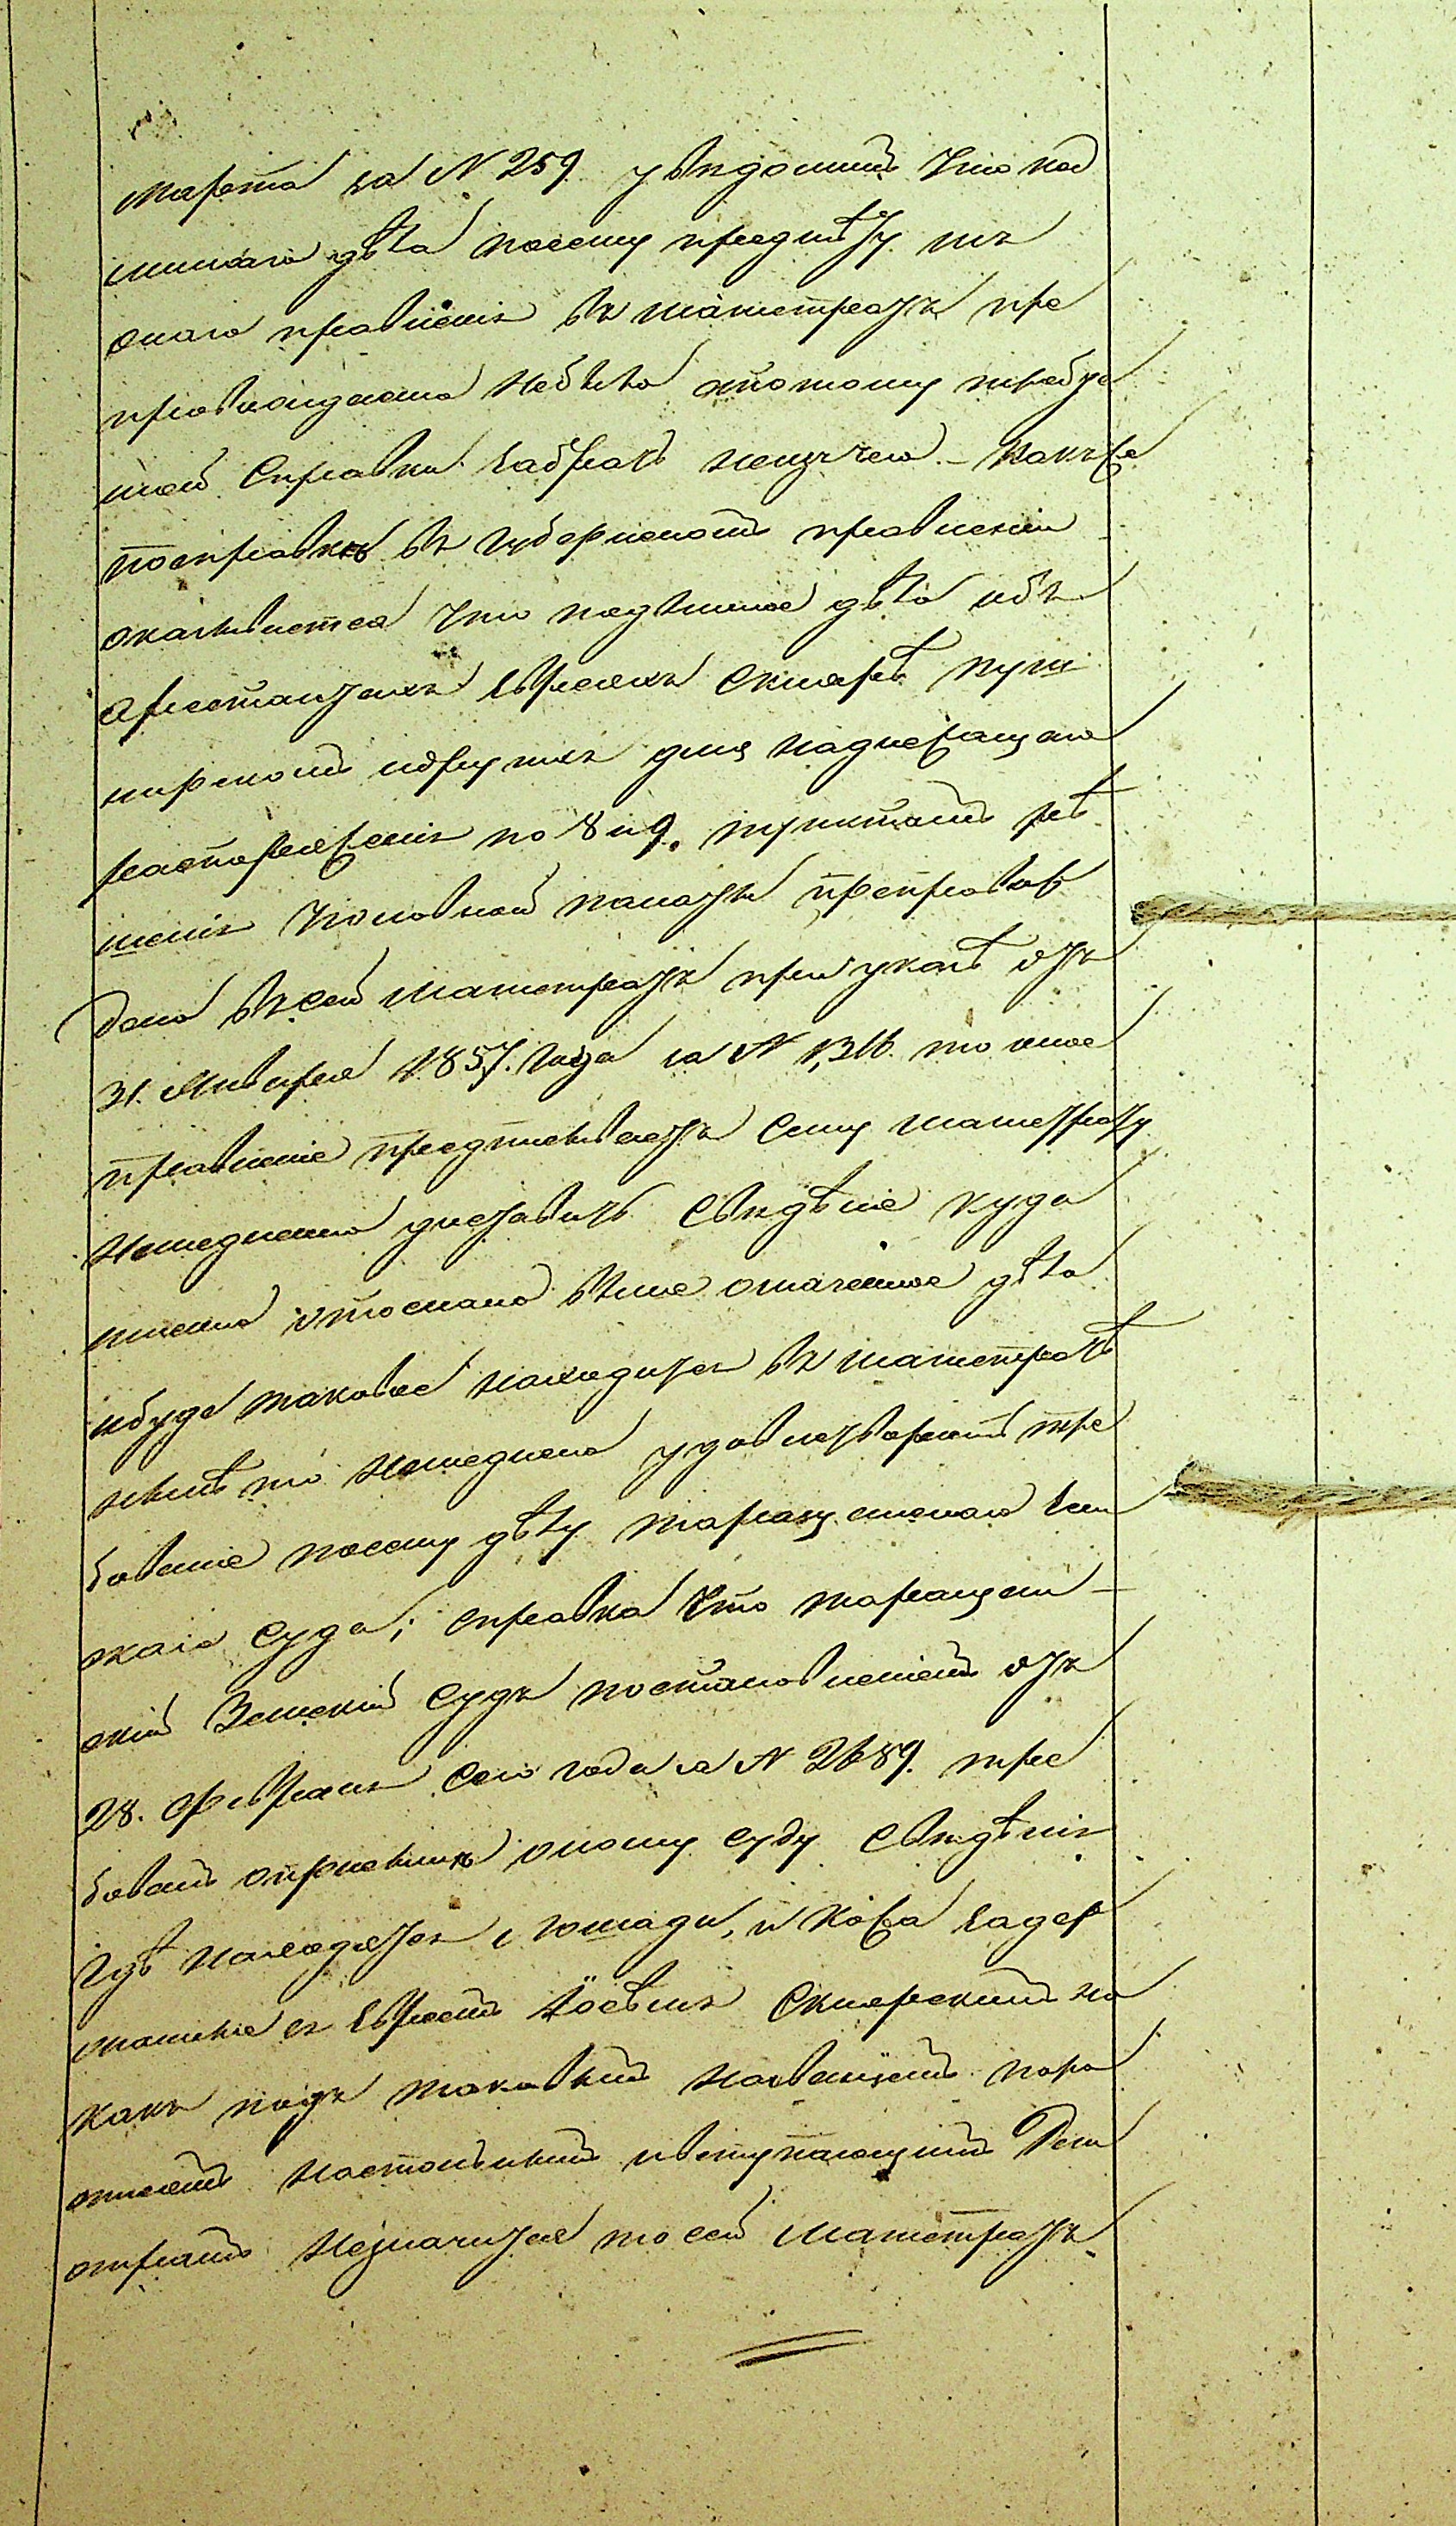 Марта за N 259. увѣдомилъ что под
линнаго дѣла посему предмѣту изъ
онаго правленія въ магистратъ пре
провождаемо небыло апотому требуе
мой справки забрать неизчего. – Какъже
посправкѣ въ Губернскомъ правленіи
оказывается что подлинное дѣло объ
арестантахъ Евреяхъ Скляръ Куш
нирскомъ идругихъ для надлежащаго
распоряженія по 8 и 9. пунктамъ рѣ
шенія уголовной палаты препровож
дено въ сей магистратъ при указѣ отъ
31. Января 1857. года за N 1316. то оное
правленіе предписываетъ сему магистрату
немедленно доставить свѣдѣніе куда
имъ отослано выше означенное дѣло
ибуде таковое находится въ магистратѣ
нынѣ то немедленно удовлетворить тре
бованіе посему дѣлу Таращанскаго Зем
скаго Суда; справка что Таращан-
скій Земскій Судъ постановленіемъ отъ
28. февраля сего года за N 2689. тре
бовалъ оприсылкѣ оному суду свѣдѣнія
гдѣ находятся лошади, и кожа задер
жанные съ Евреемъ Іосемъ Склярскимъ но
какъ подъ таковымъ названіемъ пора
описямъ настольнымъ ивступающимъ Реги
страмъ незначится то сей магистратъ.